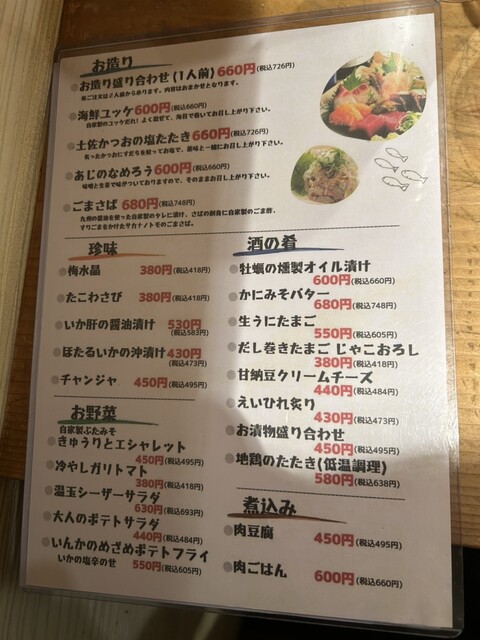 お造り
お造り盛り合わせ(1人前) 660円(税込726円)
海鮮ユッケ600円(税込660円)
自家製のユッケだれ!よく混ぜて、海苔で巻いてお召し上がり下さい。
土佐かつおの塩たたき660円(税込726円)
あじのなめろう600円(税込660円)
味噌と生姜で味がついておりますので、そのままお召し上がり下さい。
ごまさば 680円(税込748円)
九州の醤油を使った自家製のタレに漬け、さばの刺身に自家製のごま酢、
すりごまをかけたサカナノトモのごまさば。
珍味
梅水晶 380円(税込418円)
たこわさび 380円(税込418円)
いか肝の醤油漬け 530円
(税込583円)
ほたるいかの沖漬け430円
(税込473円)
チャンジャ 450円(税込495円)
お野菜
自家製ぶたみそ
きゅうりとエシャレット
450円(税込495円)
冷やしガリトマト
380円(税込418円)
温玉シーザーサラダ
630円(税込693円)
大人のポテトサラダ
440円(税込484円)
いんかのめざめポテトフライ
いかの塩辛のせ 550円(税込605円)
酒の肴
牡蠣の燻製オイル漬け
600円(税込660円)
かにみそバター
680円(税込748円)
生うにたまご
550円(税込605円)
だし巻きたまご じゃこおろし
380円(税込418円)
甘納豆クリームチーズ
440円(税込484円)
えいひれ炙り
430円(税込473円)
お漬物盛り合わせ
450円(税込495円)
地鶏のたたき(低温調理)
580円(税込638円)
煮込み
肉豆腐 450円(税込495円)
肉ごはん 600円(税込660円)